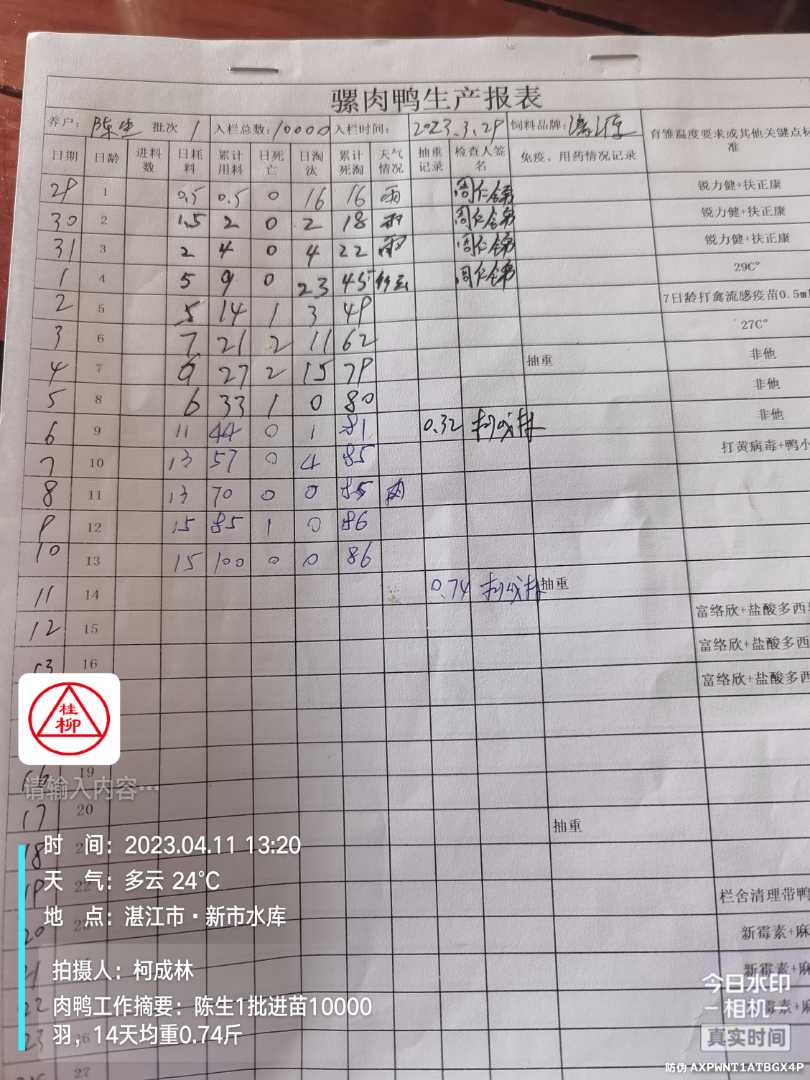 骡肉鸭生产报表
养户: 陈生 批次 1 入栏总数: 10000 入栏时间: 2023.3.29 饲料品牌: 育雏温度要求或其他关键点标准
日期 日龄 进料数 日耗料 累计用料 日死亡 日淘汰 累计死淘 天气情况 抽重记录 检查人签名 免疫、用药情况记录
29 1 0.5 0.5 0 16 16 雨 锐力健+扶正康
30 2 1.5 2 0 2 18 雨 锐力健+扶正康
31 3 2 4 0 4 22 雨 锐力健+扶正康
1 4 5 9 0 23 45 29C°
2 5 5 14 1 3 49 7日龄打禽流感疫苗0.5m
3 6 7 21 2 11 62 27C°
4 7 6 27 2 15 79 抽重 非他
5 8 6 33 1 0 80 非他
6 9 11 44 0 1 81 0.32 柯成林 非他
7 10 13 57 0 4 85 打黄病毒+鸭小
8 11 13 70 0 0 85
9 12 15 85 1 0 86
10 13 15 100 0 0 86
11 14 0.74 柯成林 抽重
12 15 富络欣+盐酸多西
13 16 富络欣+盐酸多西
富络欣+盐酸多西
桂柳
16 19
请输入内容…
17 20
抽重
18
19 22 栏舍清理带鸭
20 新霉素+麻
21 新霉素+麻
22 霉素+麻
23
27
时 间: 2023.04.11 13:20
天 气: 多云 24℃
地 点: 湛江市·新市水库
拍摄人: 柯成林
肉鸭工作摘要: 陈生1批进苗10000
羽,14天均重0.74斤
今日水印
相机
真实时间
防伪 AXPWNT1ATBGX4P